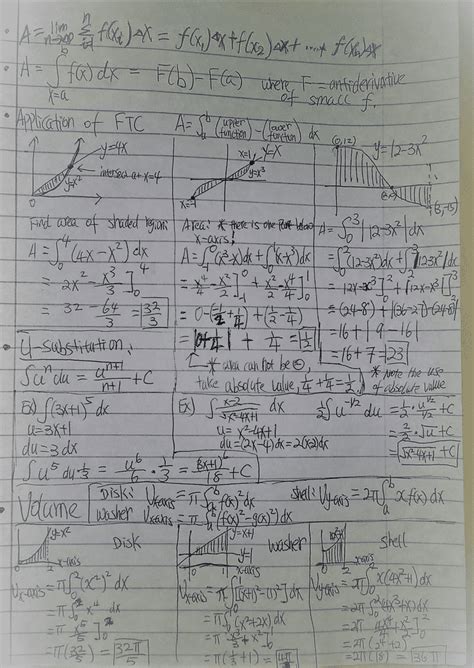 • A = lim n→∞ Σ i=1 n f(xi) Δx = f(x₁) Δx + f(x₂) Δx + .... f(xn) Δx
• A = ∫ x=a b f(x) dx = F(b) - F(a) where F = antiderivative of small f.
• Application of FTC A = ∫ a b (upper function) - (lower function) dx
y=4x
y=x²
intersect at x=4
x=1
y=x
y=x³
x=-1
(0,12)
y=12-3x²
(3,-15)
Find area of shaded region:
A = ∫₀⁴ (4x - x²) dx
= 2x² - x³/3 ]₀⁴
= 32 - 64/3 = 32/3
Area: * there is one part below x-axis!
A = ∫₋₁⁰ (x³-x) dx + ∫₀¹ (x-x³) dx
= x⁴/4 - x²/2 ]₋₁⁰ + x²/2 - x⁴/4 ]₀¹
+ (1/2 - 1/4)
+ 1/4 = 1/2
* area can not be ⊖, take absolute value, 1/4 + 1/4 = 1/2
A = ∫₀³ |12-3x²| dx
= ∫₀² (12-3x²) dx +
= (24-8) + |(36-27)-(24-8)|
= 16 + | 9 - 16|
= 16 + 7 = 23
* Note the use of absolute value
U-substitution:
∫ uⁿ du = uⁿ⁺¹/n+1 + C
Ex) ∫ (3x+1)⁵ dx
u = 3x+1
du = 3 dx
∫ u⁵ du 1/3 = u⁶/6 · 1/3 = (3x+1)⁶/18 + C
Ex) ∫ x-2/√x²-4x+1 dx
u = x²-4x+1
du = (2x-4) dx = 2(x-2) dx
1/2 ∫ u^-1/2 du = 1/2 · u^1/2/1/2 + C
= 2/2 · √u + C
= √x²-4x+1 + C
Volume
Disk: Vx-axis = π ∫ a b f(x)² dx
washer Vx-axis = π ∫ a b (f(x)² - g(x)²) dx
shell: Vy-axis = 2π ∫ a b x f(x) dx
y=x²
x-axis
Disk
Vx-axis = π ∫₀² (x²)² dx
= π ∫₀² x⁴ dx
= π x⁵/5 ]₀²
= π (32/5) = 32π/5
y=x+1
y=1
x-axis
washer
Vx-axis = π ∫₀¹ [(x+1)² - (1)²] dx
= π ∫₀¹ (x²+2x) dx
= π x³/3 + x² ]₀¹
= π (1/3 + 1) = 4π/3
shell
Vy-axis = 2π ∫₀² x(4x²+1) dx
= 2π ∫₀² 4x³+x) dx
= 36π